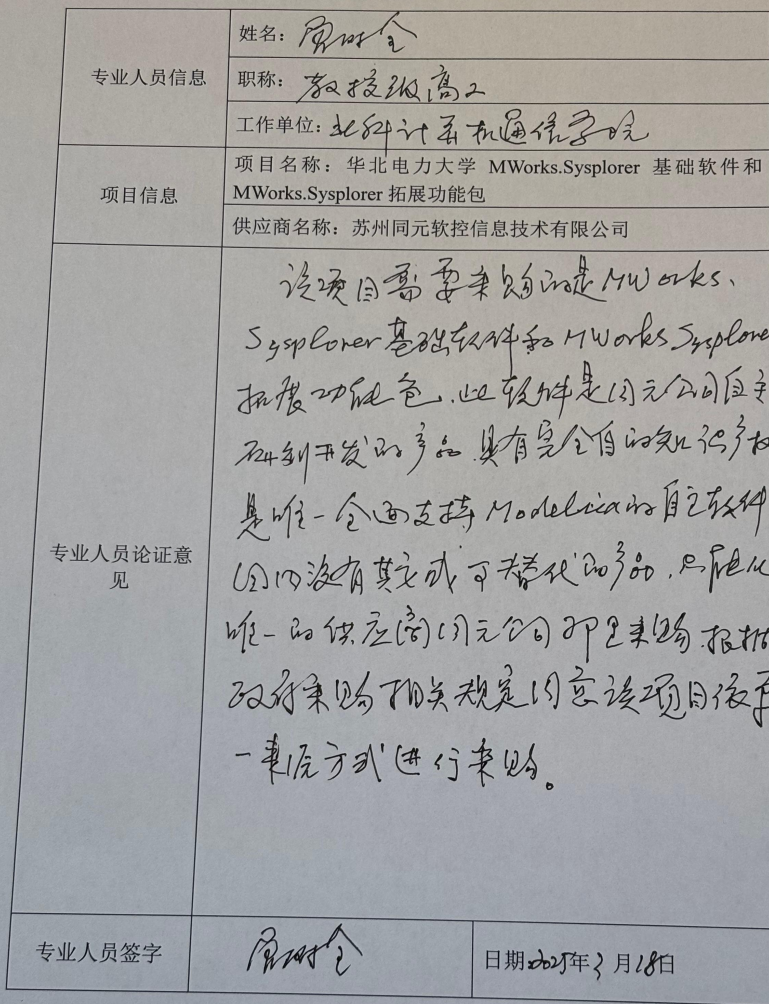 专业人员信息
姓名：
职称： 教授级高工
工作单位： 北科计算机通信学院
项目信息
项目名称：华北电力大学 MWorks.Sysplorer 基础软件和
MWorks.Sysplorer 拓展功能包
供应商名称：苏州同元软控信息技术有限公司
专业人员论证意
见
该项目需要采购的是MWorks.
Sysplorer基础软件和MWorks.Sysplore
拓展功能包.此软件是同元公司自主
研制开发的产品 具有完全自的知识产权
是唯一全面支持Modelica的自主软件
国内没有其它或可替代的产品,只能从
唯一的供应商同元公司那里采购.根据
政府采购相关规定同意该项目依单
一来源方式进行采购。
专业人员签字
日期:2025年3月18日